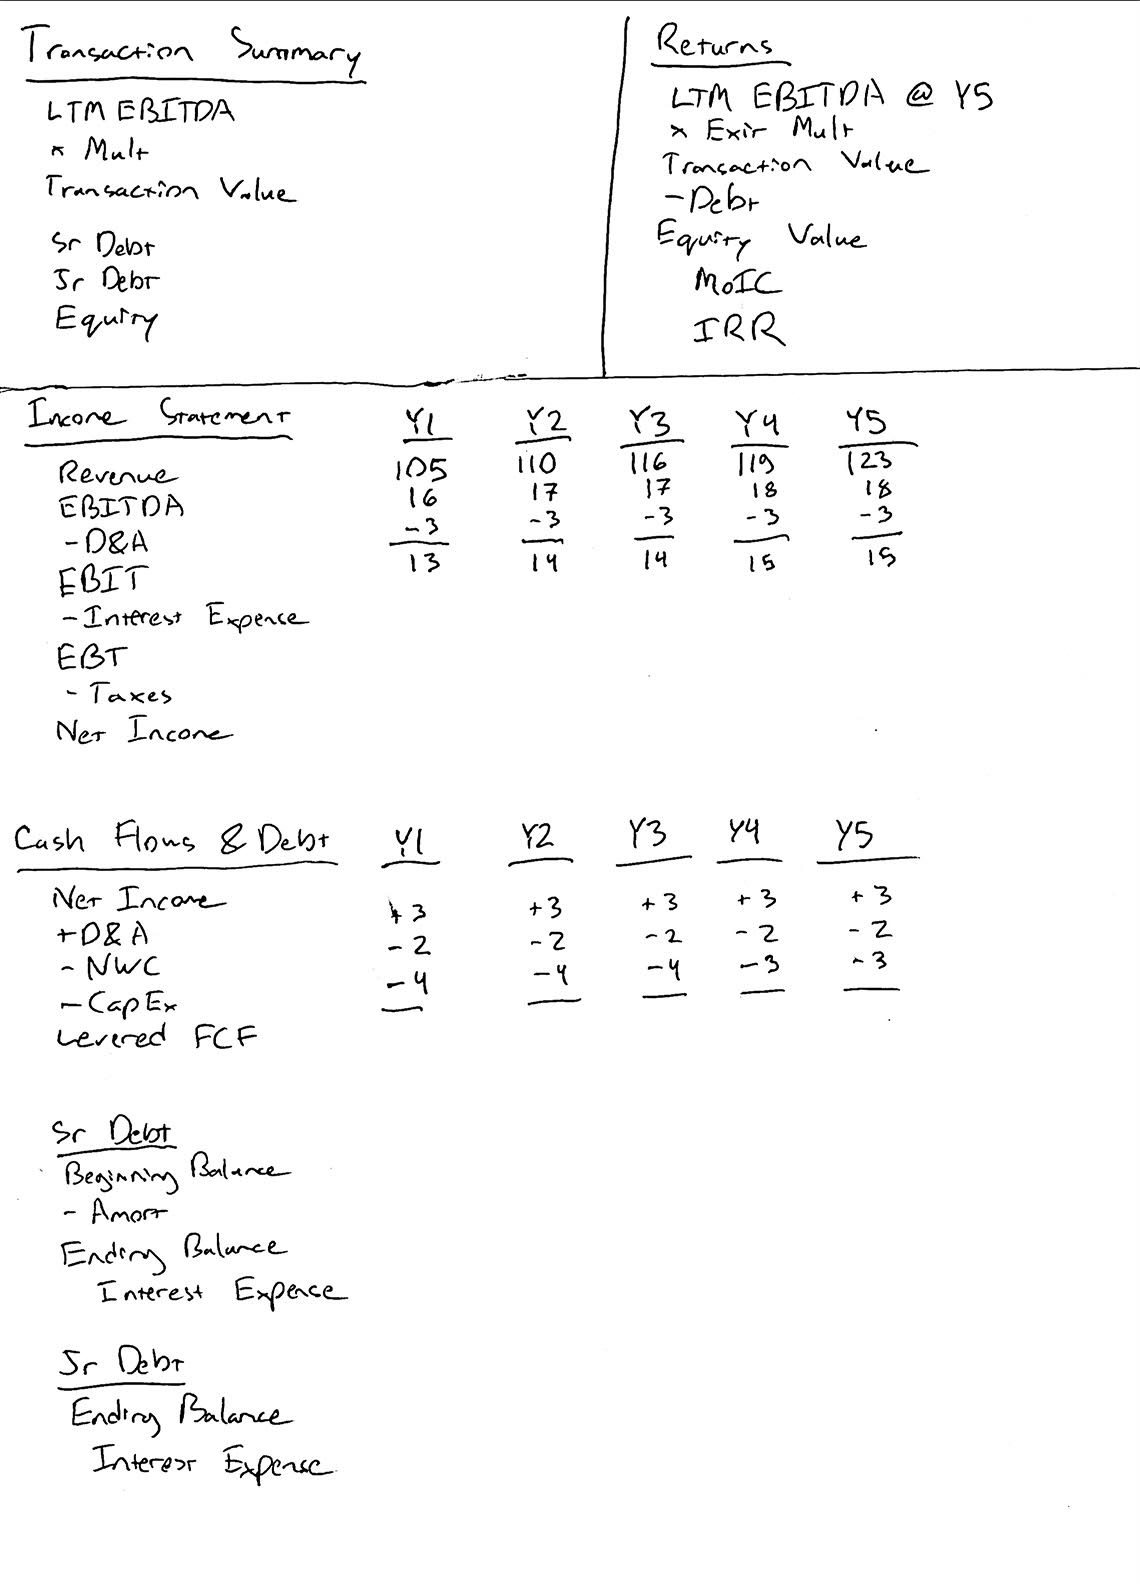 Transaction Summary
LTM EBITDA
x Mult
Transaction Value
Sr Debt
Jr Debt
Equity
Returns
LTM EBITDA @ Y5
x Exit Mult
Transaction Value
- Debt
Equity Value
MoIC
IRR
Income Statement Y1 Y2 Y3 Y4 Y5
Revenue 105 110 116 119 123
EBITDA 16 17 17 18 18
- D&A -3 -3 -3 -3 -3
EBIT 13 14 14 15 15
- Interest Expence
EBT
- Taxes
Net Income
Cash Flows & Debt Y1 Y2 Y3 Y4 Y5
Net Income
+ D&A +3 +3 +3 +3 +3
- NWC -2 -2 -2 -2 -2
- CapEx -4 -4 -4 -3 -3
Levered FCF
Sr Debt
Beginning Balance
- Amort
Ending Balance
Interest Expense
Jr Debt
Ending Balance
Interest Expense